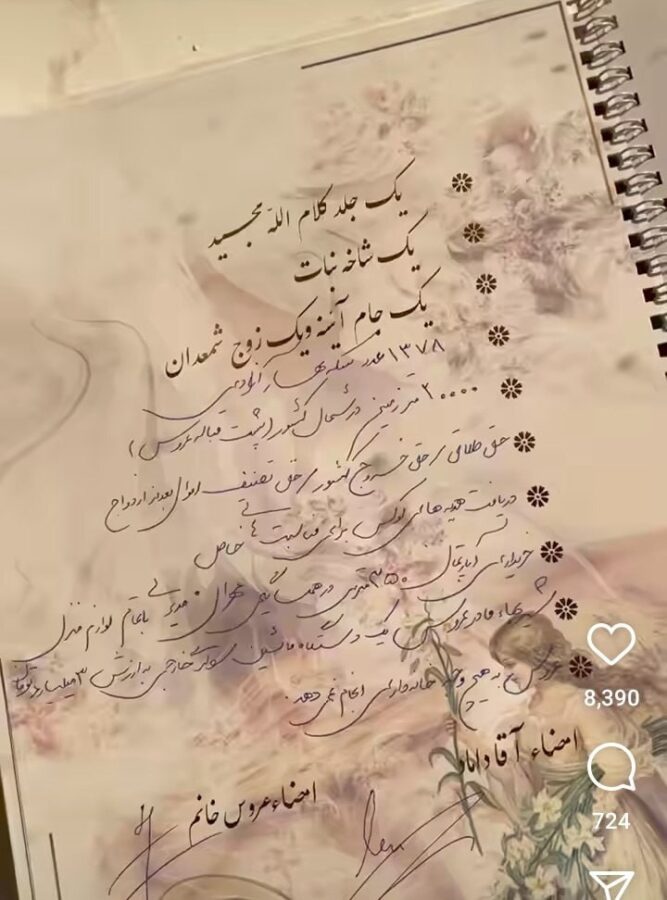 یک جلد کلام الله مجید
یک شاخه نبات
یک جام آینه و یک زوج شمعدان
۱۳۷۸ عدد سکه بهار آزادی
۲۰۰۰۰ متر زمین در شمال کشور (پشت قباله عروس)
حق طلاق، حق خروج کشور، حق تصنیف اموال بعد از ازدواج
دریافت هدیه های لوکس برای مناسبت های خاص
خریداری آپارتمان ۳۵۰ متری در همسایگی با تمام لوازم منزل
شیربهاء مادر عروس یک دستگاه ماشین خارجی به ارزش ۳ میلیارد تومان
عروس به هیچ وجه خانه داری انجام نمی دهد.
امضاء آقا داماد
امضاء عروس خانم
8,390
724